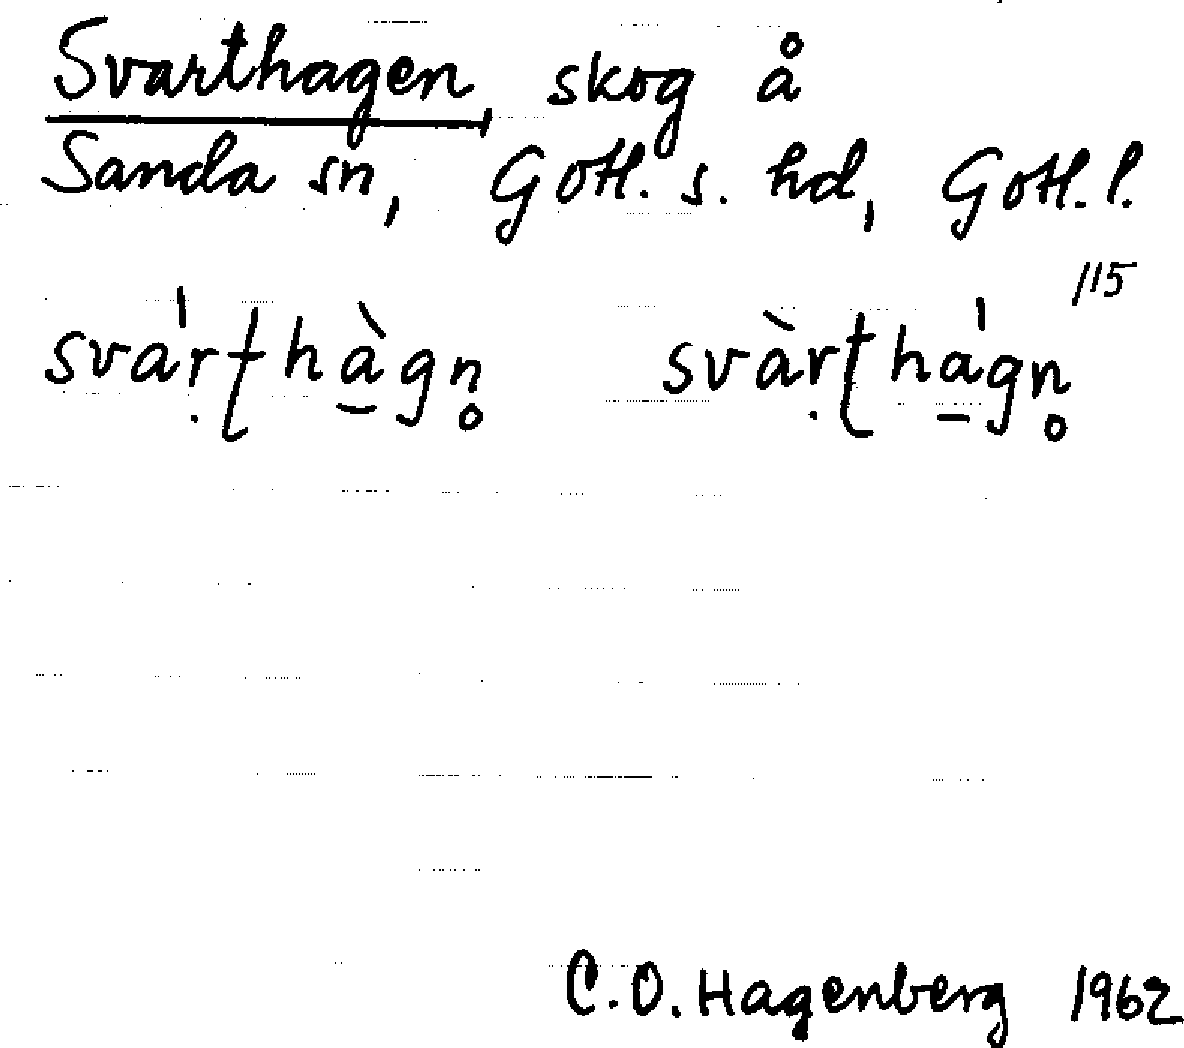 Svarthagen, skog å
Sanda sn, Gotl. s. hd, Gotl. l.
115
svárṭhàgn̥ svàrṭhágn̥
C.O. Hagenberg 1962